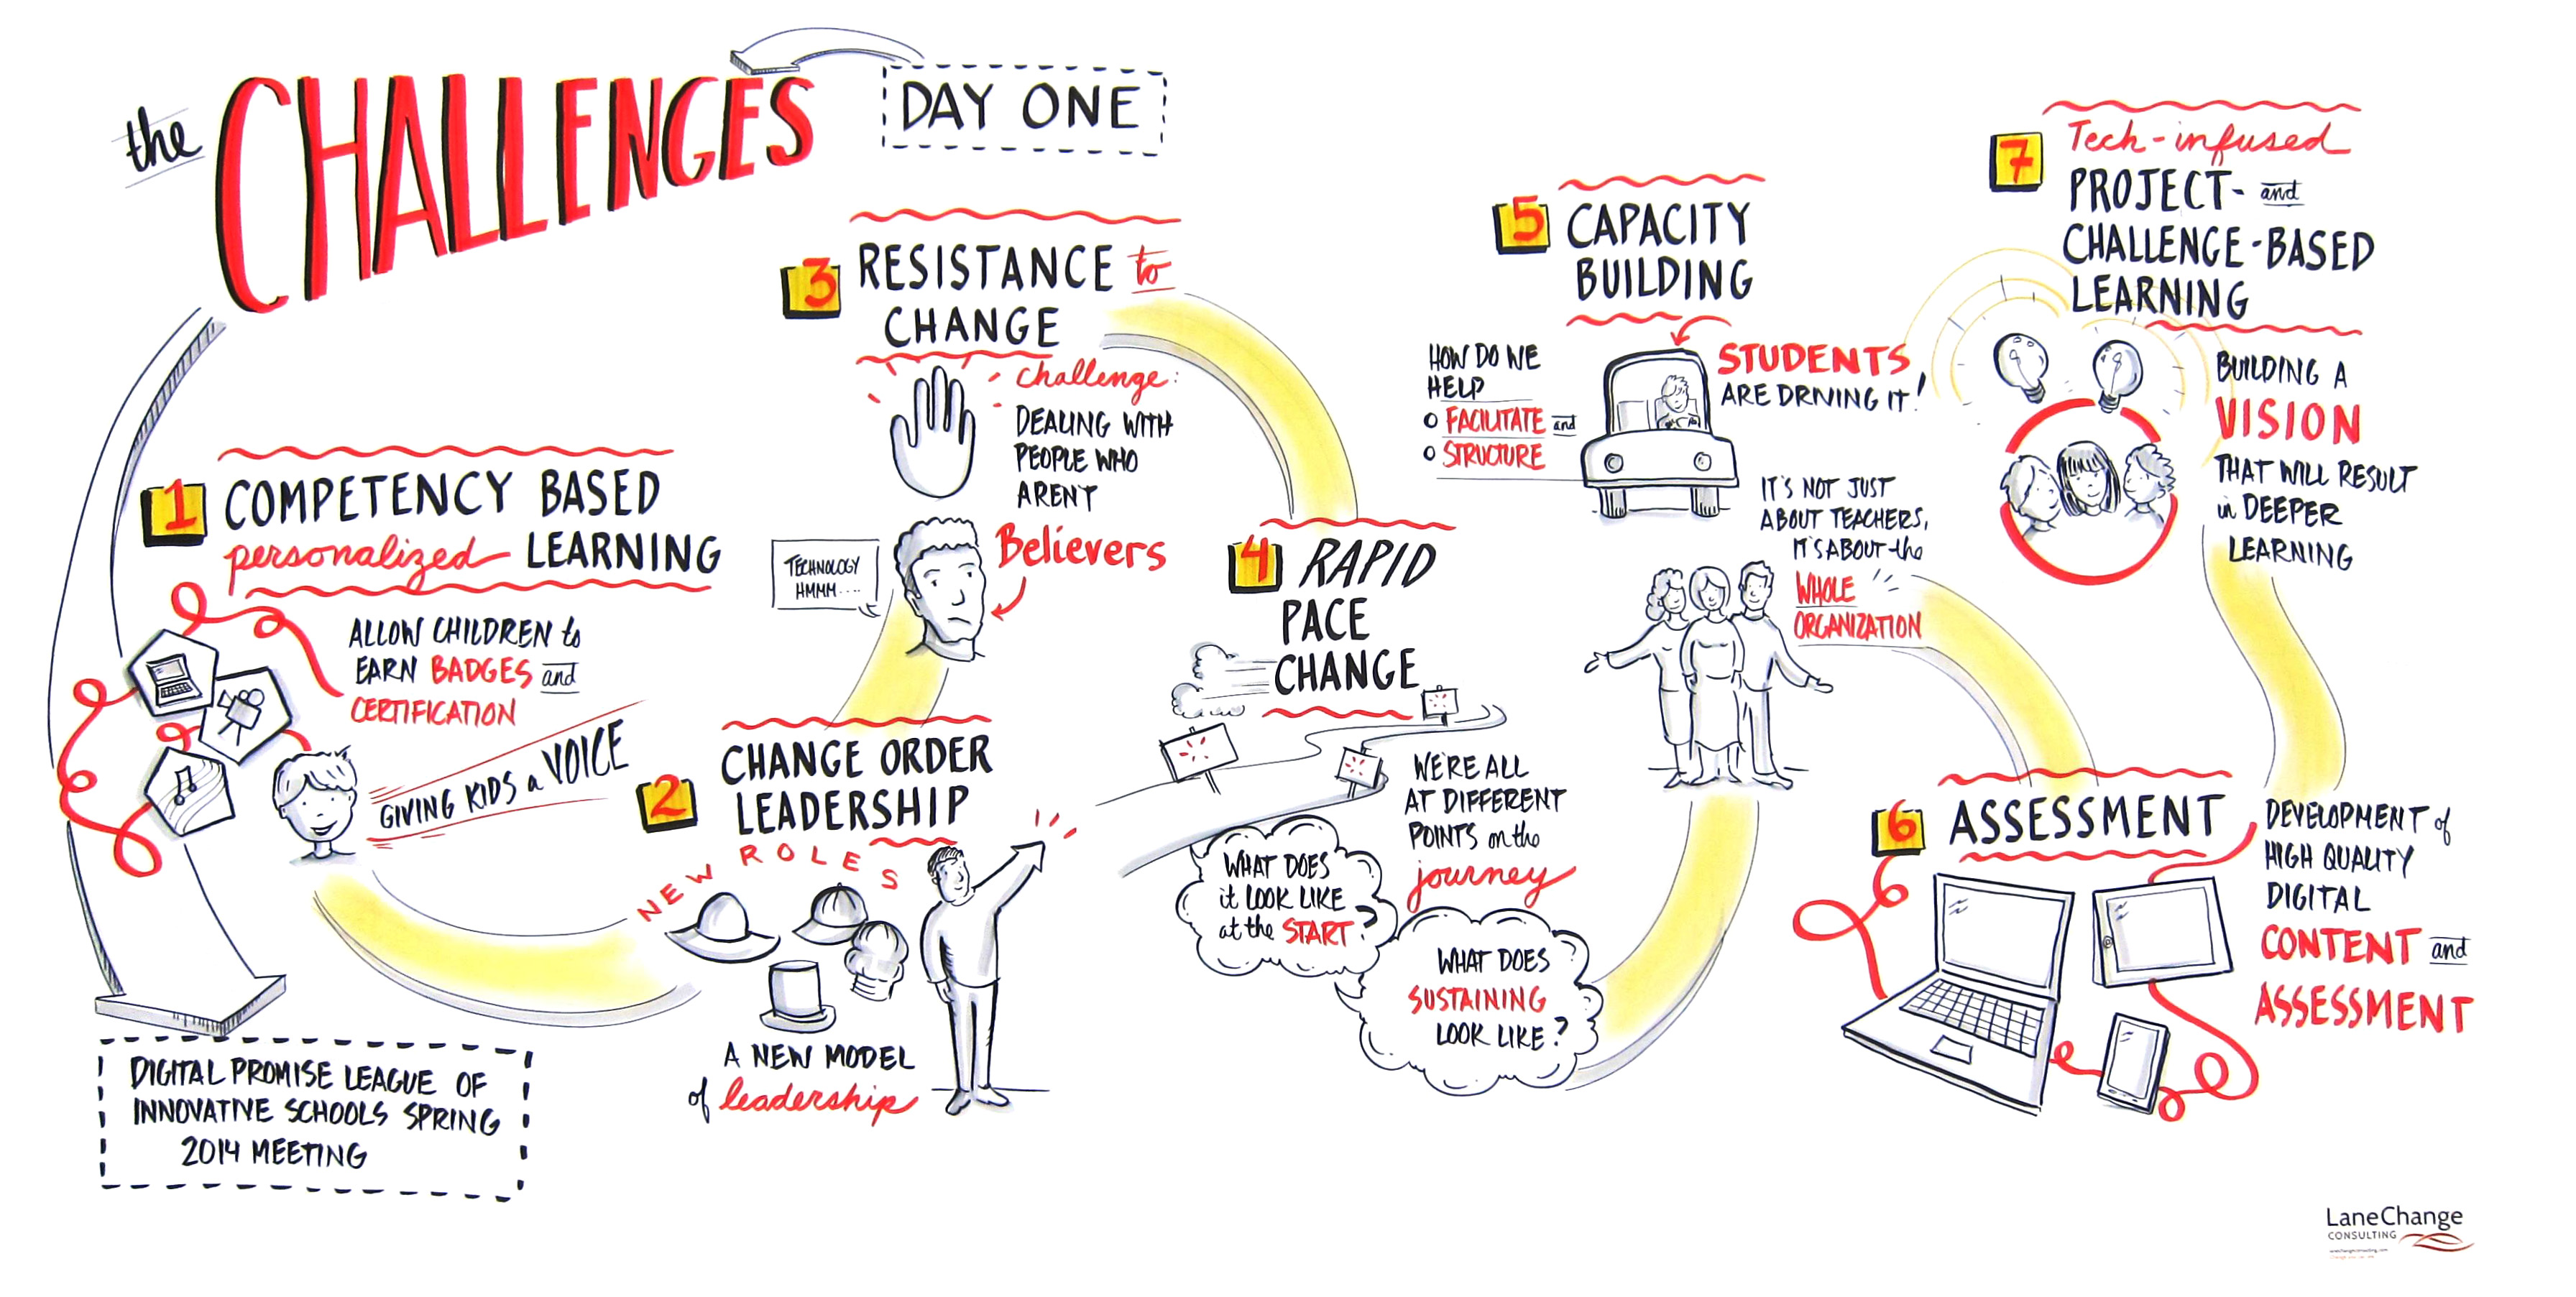 the
CHALLENGES
DAY ONE
1
COMPETENCY BASED
personalized LEARNING
ALLOW CHILDREN to
EARN BADGES and
CERTIFICATION
GIVING KIDS a VOICE
DIGITAL PROMISE LEAGUE OF
INNOVATIVE SCHOOLS SPRING
2014 MEETING
2
CHANGE ORDER
LEADERSHIP
NEW ROLES
A NEW MODEL
of leadership
3
RESISTANCE to
CHANGE
challenge:
DEALING WITH
PEOPLE WHO
ARENT
Believers
TECHNOLOGY
HMMM....
4
RAPID
PACE
CHANGE
WE'RE ALL
AT DIFFERENT
POINTS on the
journey
WHAT DOES
it LOOK LIKE
at the START?
WHAT DOES
SUSTAINING
LOOK LIKE?
5
CAPACITY
BUILDING
HOW DO WE
HELP
FACILITATE and
STRUCTURE
STUDENTS
ARE DRIVING IT!
IT'S NOT JUST
ABOUT TEACHERS,
IT'S ABOUT the
WHOLE
ORGANIZATION
6
ASSESSMENT
DEVELOPMENT of
HIGH QUALITY
DIGITAL
CONTENT and
ASSESSMENT
7
Tech-infused
PROJECT- and
CHALLENGE-BASED
LEARNING
BUILDING A
VISION
THAT WILL RESULT
in DEEPER
LEARNING
LaneChange
CONSULTING